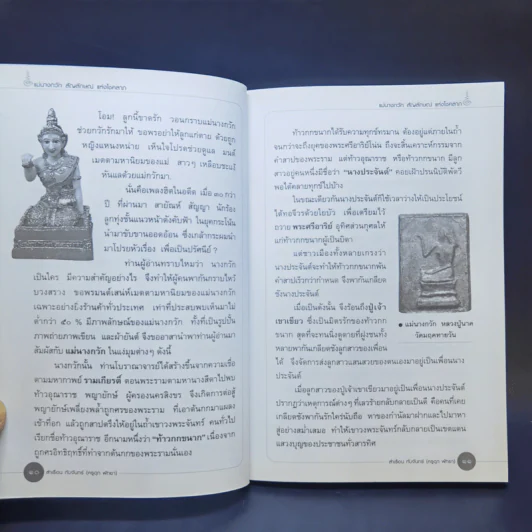 แม่นางกวัก สัญลักษณ์ แห่งโชคลาภ
โอม! ลูกนี้ขาดรัก วอนกราบแม่นางกวัก
ช่วยกวักรักมาให้ ขอพรอย่าให้ลูกแก่ตาย ด้วยถูก
หญิงแหนงหน่าย เห็นใจโปรดช่วยดูแล มนต์
เมตตามหานิยมของแม่ สาวๆ เหลือบชะแง้
หันแลด้วยแม่กวักมา.
นั่นคือเพลงฮิตในอดีต เมื่อ ๓๐ กว่า
ปี ที่ผ่านมา สายัณห์ สัญญา นักร้อง
ลูกทุ่งชั้นแนวหน้าดังคับฟ้า ในยุคกระโน้น
นำมาขับขานออดอ้อน ซึ่งเกล้ากระผมนำ
มาโปรยหัวเรื่อง เพื่อเป็นปริศนีย์ ?
ท่านผู้อ่านทราบไหมว่า นางกวัก
เป็นใคร มีความสำคัญอย่างไร จึงทำให้ผู้คนพากันกราบไหว้
บวงสรวง ขอพรมนต์เสน่ห์เมตตามหานิยมของแม่นางกวัก
เฉพาะอย่างยิ่งร้านค้าทั่วประเทศ เท่าที่ประสบพบเห็นมาไม่
ต่ำกว่า ๙๐ % มีภาพลักษณ์ของแม่นางกวัก ทั้งที่เป็นรูปปั้น
ภาพถ่ายภาพเขียน และผ้ายันต์ จึงขออาสานำพาท่านผู้อ่านมา
สัมผัสกับ แม่นางกวัก ในแง่มุมต่างๆ ดังนี้
นางกวักนั้น ท่านโบราณาจารย์ได้สร้างขึ้นจากความเชื่อ
ตามมหากาพย์ รามเกียรติ์ ตอนพระรามตามหานางสีดาไปพบ
ท้าวอุณาราช พญายักษ์ ผู้ครองนครสิงขร จึงเกิดการต่อสู้
พญายักษ์เพลี่ยงพล้ำถูกศรของพระราม ที่เอาต้นกกมาแผลง
เข้าที่อก แล้วถูกสาปตรึงให้อยู่ในถ้ำเขาวงพระจันทร์ คนทั่วไป
เรียกชื่อท้าวอุณาราช อีกนามหนึ่งว่า "ท้าวกกขนาก" เนื่องจาก
ถูกศรอิทธิฤทธิ์ที่ทำจากต้นกกของพระรามนั่นเอง
๑๐ สำเรียน ทับจันทร์
แม่นางกวัก สัญลักษณ์ แห่งโชคลาภ
ท้าวกกขนากได้รับความทุกข์ทรมาน ต้องอยู่แต่ภายในถ้ำ
จนกว่าจะถึงยุคของพระศรีอาริย์โน่น ถึงจะสิ้นเคราะห์กรรมจาก
คำสาปของพระราม แต่ท้าวอุณาราช หรือท้าวกกขนาก มีลูก
สาวอยู่คนหนึ่งมีชื่อว่า "นางประจันต์" คอยเฝ้าปรนนิบัติพัดวี
พอได้คลายทุกข์ไปบ้าง
ในขณะเดียวกันนางประจันต์ก็ใช้เวลาว่างให้เป็นประโยชน์
ได้ทอจีวรด้วยใยบัว เพื่อเตรียมไว้
ถวาย พระศรีอาริย์ อุทิศส่วนกุศลให้
แก่ท้าวกกขนากผู้เป็นบิดา
แต่ชาวเมืองทั้งหลายเกรงว่า
นางประจันต์จะทำให้ท้าวกกขนากพ้น
คำสาปเร็วกว่ากำหนด จึงพากันเกลียด
ชังนางประจันต์
เมื่อเป็นดังนั้น จึงร้อนถึงปู่เจ้า
เขาเขียว ซึ่งเป็นมิตรรักของท้าวกก
ขนาก สุดที่จะทนนิ่งดูดายที่ผู้งชนทั้ง
หลายพากันเกลียดชังลูกสาวของเพื่อน
ได้ จึงจัดการส่งลูกสาวแสนสวยของตนเองมาอยู่เป็นเพื่อนนาง
ประจันต์
เมื่อลูกสาวของปู่เจ้าเขาเขียวมาอยู่เป็นเพื่อนนางประจันต์
ปรากฏว่าเหตุการณ์ต่างๆ ที่เลวร้ายกลับกลายเป็นดี คือคนที่เคย
เกลียดชังพากันรักใคร่นับถือ พาของกำนัลมาฝากและไปมาหา
สู่อย่างสม่ำเสมอ ทำให้เขาวงพระจันทร์กลับกลายเป็นเขตแดน
แสวงบุญของประชาชนทั่วสารทิศ
● แม่นางกวัก หลวงปู่นาค
วัดมฤคทายวัน
สำเรียน ทับจันทร์ ๑๑